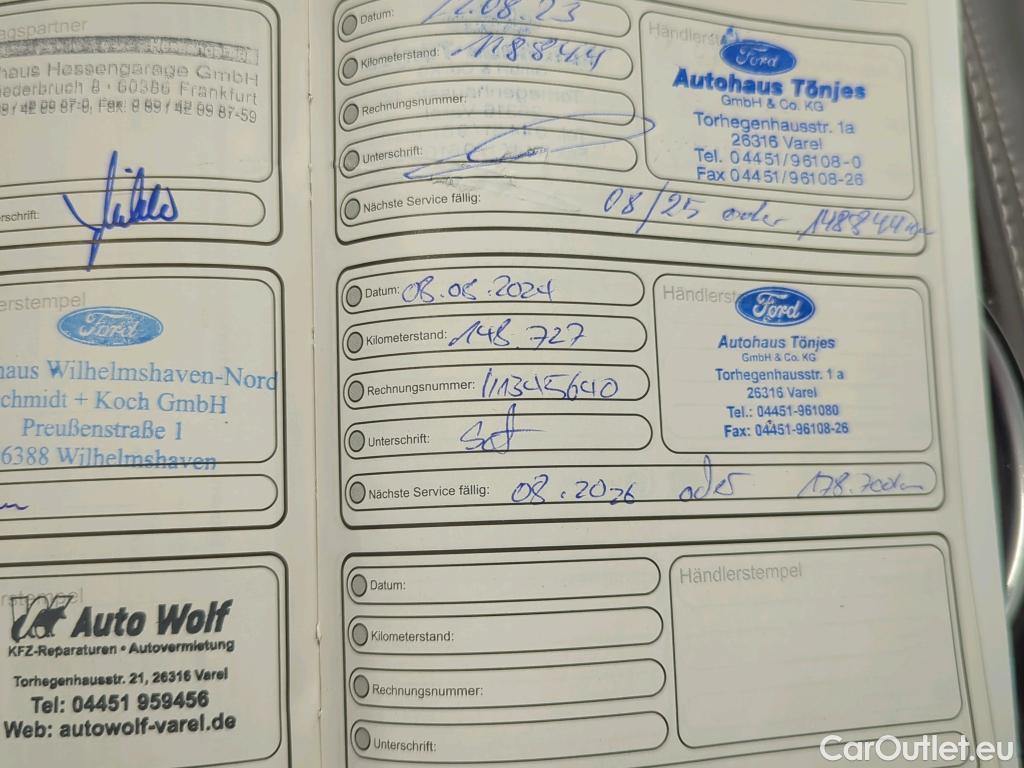 agspartner
haus Hessengarage GmbH
iederbruch 8 · 60386 Frankfurt
erschrift:
erstempel
Ford
haus Wilhelmshaven-Nord
chmidt + Koch GmbH
Preußenstraße 1
6388 Wilhelmshaven
erstempel
Auto Wolf
KFZ-Reparaturen • Autovermietung
Torhegenhausstr. 21, 26316 Varel
Tel: 04451 959456
Web: autowolf-varel.de
Datum: .08.23
Kilometerstand: 118844
Rechnungsnummer:
Unterschrift:
Nächste Service fällig: 08/25 oder 148844
Händlerst
Ford
Autohaus Tönjes
GmbH & Co. KG
Torhegenhausstr. 1a
26316 Varel
Tel. 04451/96108-0
Fax 04451/96108-26
Datum: 08.08.2024
Kilometerstand: 148.727
Rechnungsnummer: 11345640
Unterschrift:
Nächste Service fällig: 08.2026 oder 178.700km
Händlerst
Ford
Autohaus Tönjes
GmbH & Co. KG
Torhegenhausstr. 1 a
26316 Varel
Tel.: 04451-961080
Fax: 04451-96108-26
Datum:
Kilometerstand:
Rechnungsnummer:
Unterschrift:
Händlerstempel
CarOutlet.eu